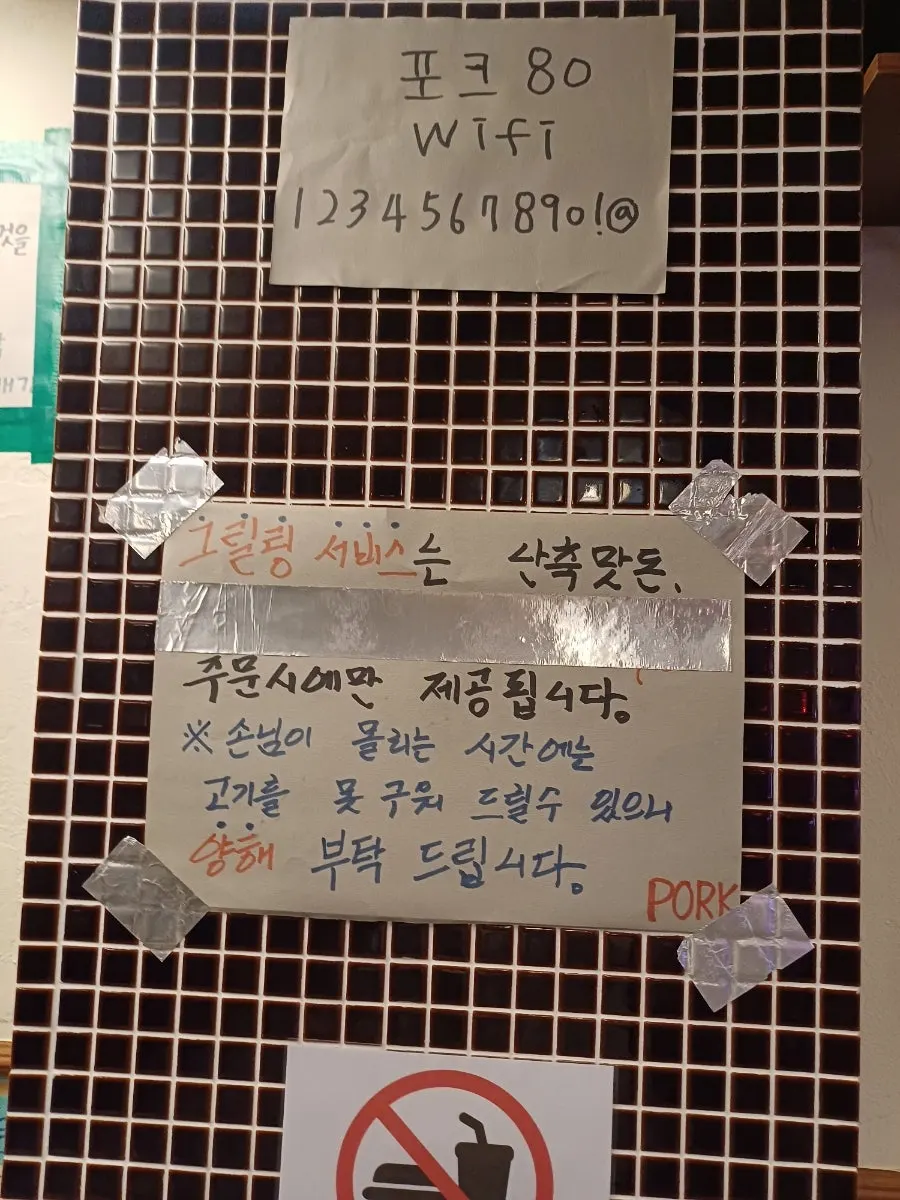 포크 80
Wifi
1234567890!@
그릴링 서비스는 산축맛돈.
주문시에만 제공됩니다.
※ 손님이 몰리는 시간에는
고기를 못 구워 드릴수 있으니
양해 부탁 드립니다.
PORK
것을